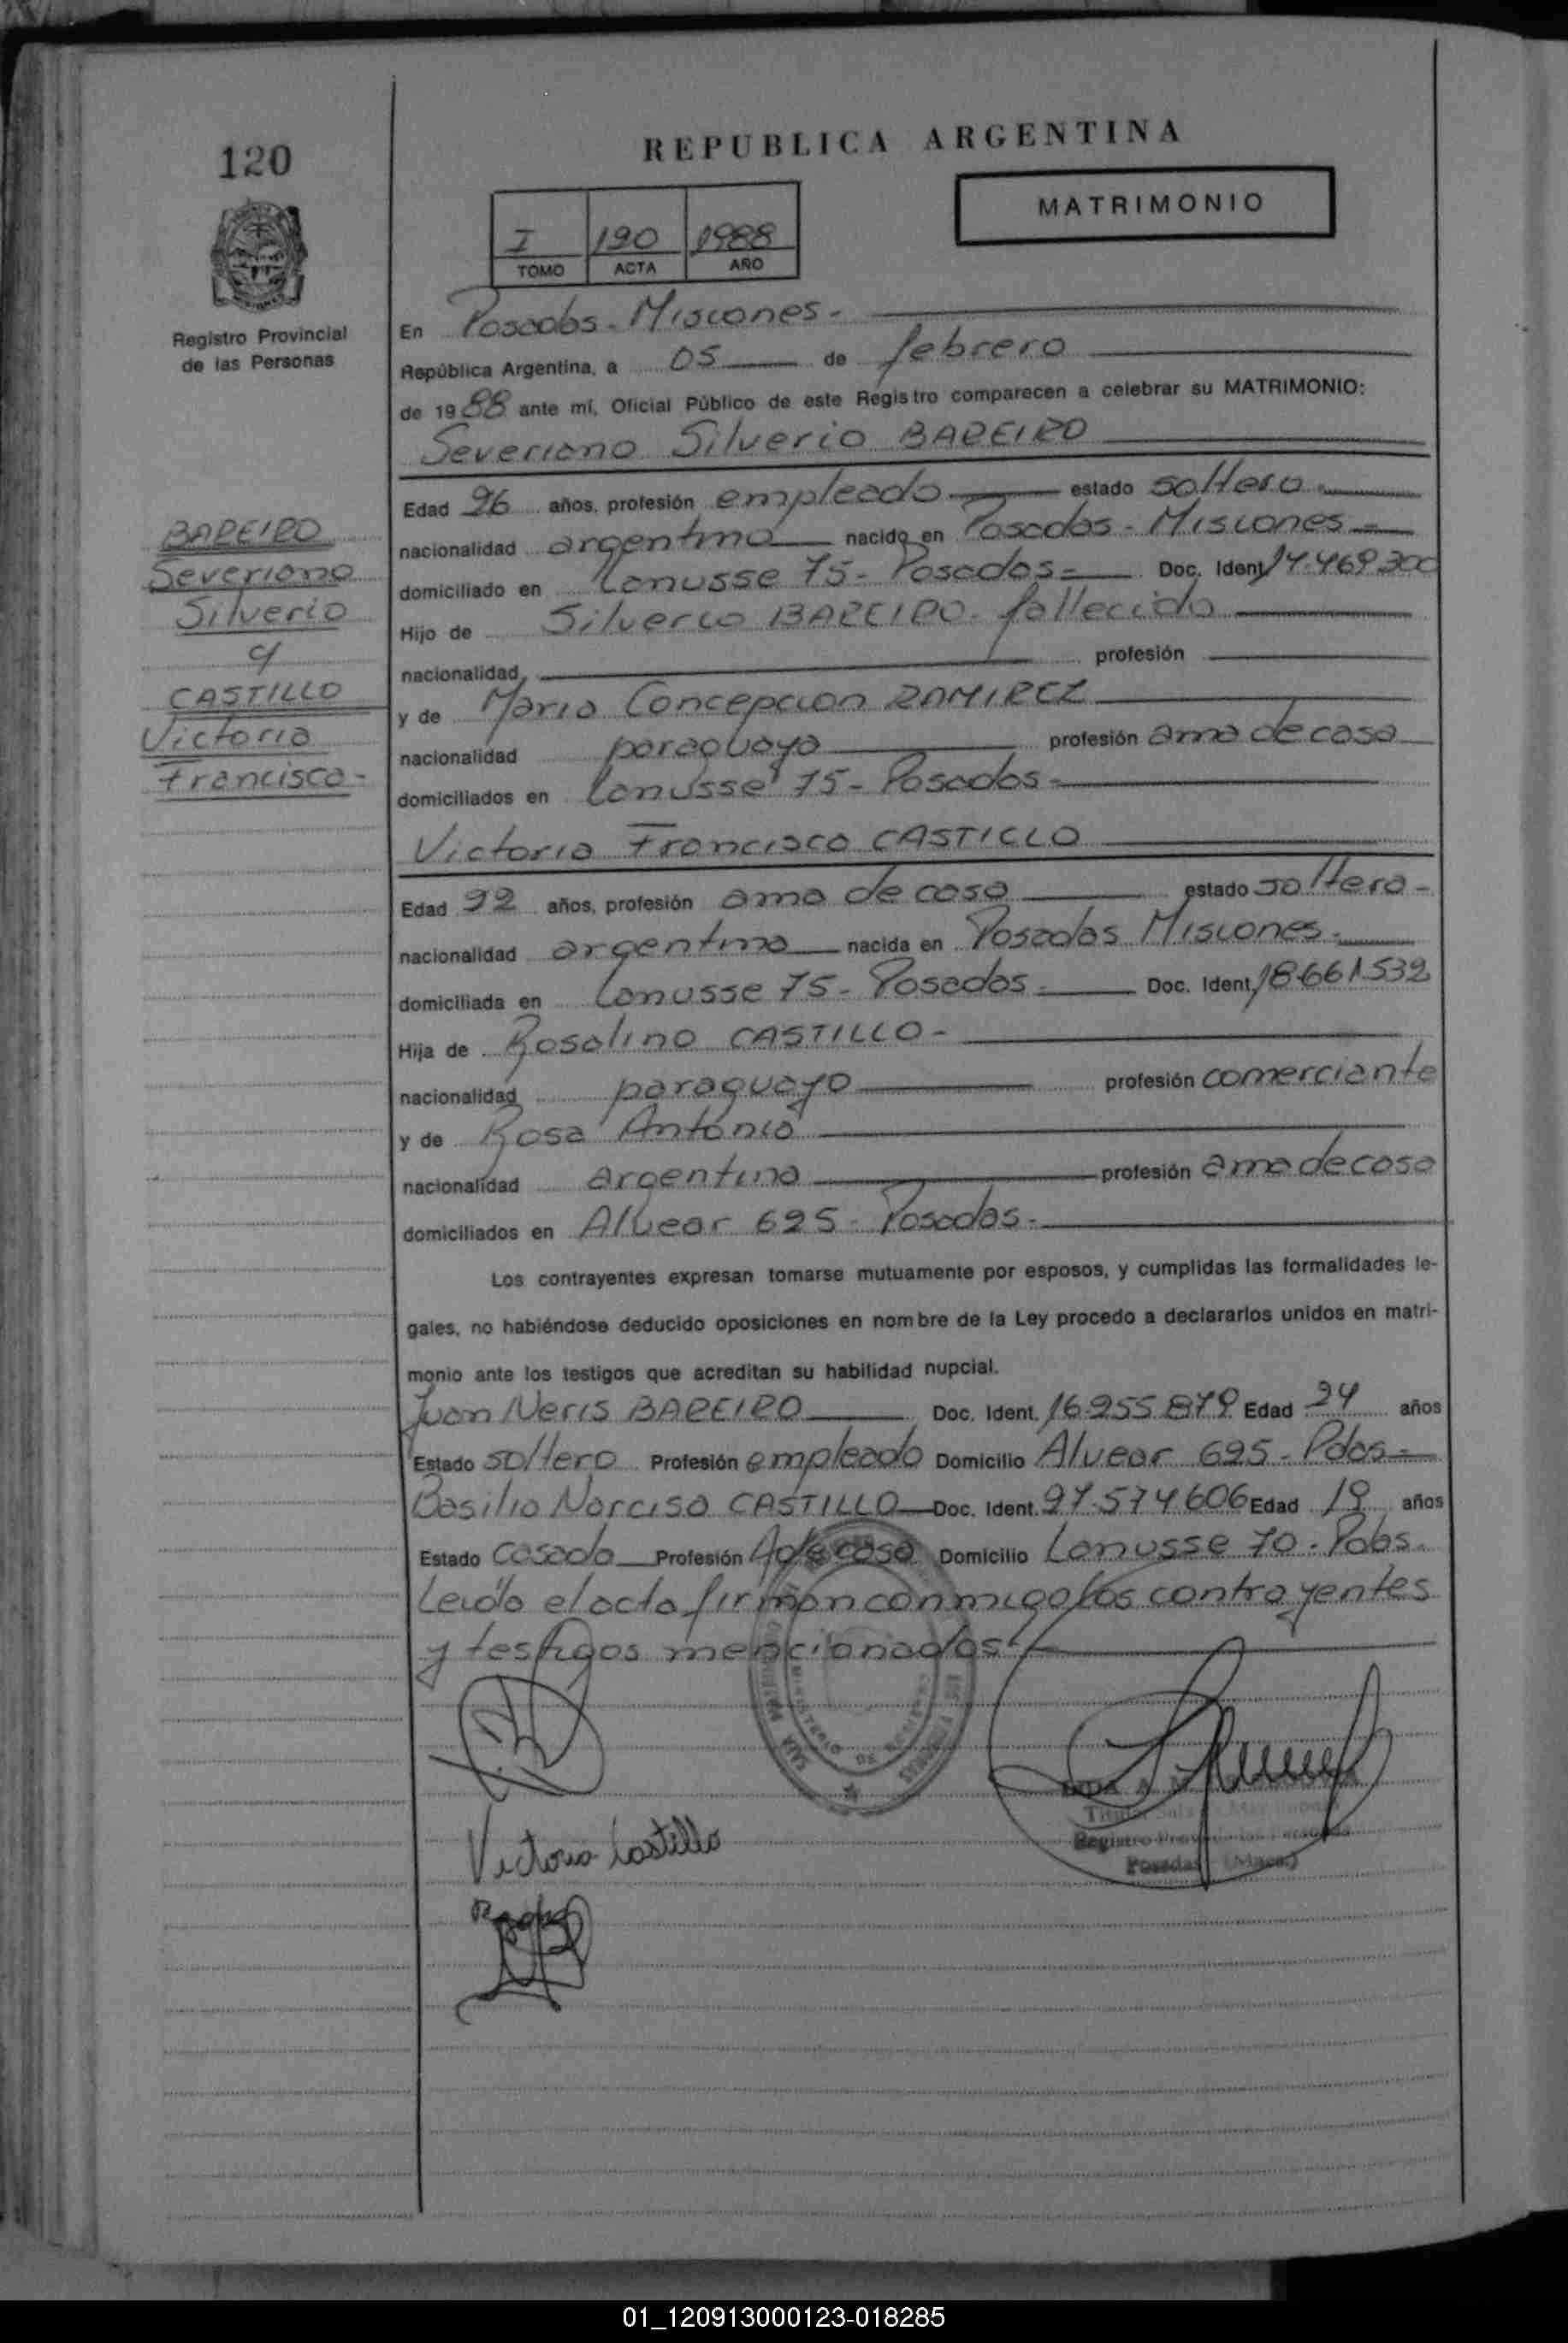 120
REPUBLICA ARGENTINA
MATRIMONIO
I 120 1988
TOMO ACTA AÑO
Registro Provincial
de las Personas
En Posadas - Misiones -
República Argentina, a 05 de febrero
de 1988 ante mí, Oficial Público de este Registro comparecen a celebrar su MATRIMONIO:
Severiano Silverio BAREIRO
BAREIRO
Severiano
Silverio
c/
CASTILLO
Victoria
Francisca -
Edad 26 años, profesión empleado estado soltero
nacionalidad argentina nacido en Posadas - Misiones -
domiciliado en Lanusse 75 - Posadas - Doc. Ident. 14.469.300
Hijo de Silverio BAREIRO - fallecido
nacionalidad profesión
y de Maria Concepcion RAMIREZ
nacionalidad paraguaya profesión ama de casa
domiciliados en Lanusse 75 - Posadas -
Victoria Francisca CASTILLO
Edad 22 años, profesión ama de casa estado soltera -
nacionalidad argentina nacida en Posadas Misiones -
domiciliada en Lanusse 75 - Posadas - Doc. Ident. 18.661.532
Hija de Rosalino CASTILLO -
nacionalidad paraguayo profesión comerciante
y de Rosa Antonio
nacionalidad argentina profesión ama de casa
domiciliados en Alvear 625 - Posadas -
Los contrayentes expresan tomarse mutuamente por esposos, y cumplidas las formalidades le-
gales, no habiéndose deducido oposiciones en nombre de la Ley procedo a declararlos unidos en matri-
monio ante los testigos que acreditan su habilidad nupcial.
Juan Neris BAREIRO Doc. Ident. 16.255.879 Edad 24 años
Estado soltero Profesión empleado Domicilio Alvear 625 - Pdas -
Basilia Narcisa CASTILLO Doc. Ident. 27.574.606 Edad 19 años
Estado casada Profesión A de casa Domicilio Lanusse 70 - Pdas.
Leída el acta firman conmigo los contrayentes
y testigos mencionados.
Victoria Castillo
Registro
Posadas (Mnes.)
01_120913000123-018285